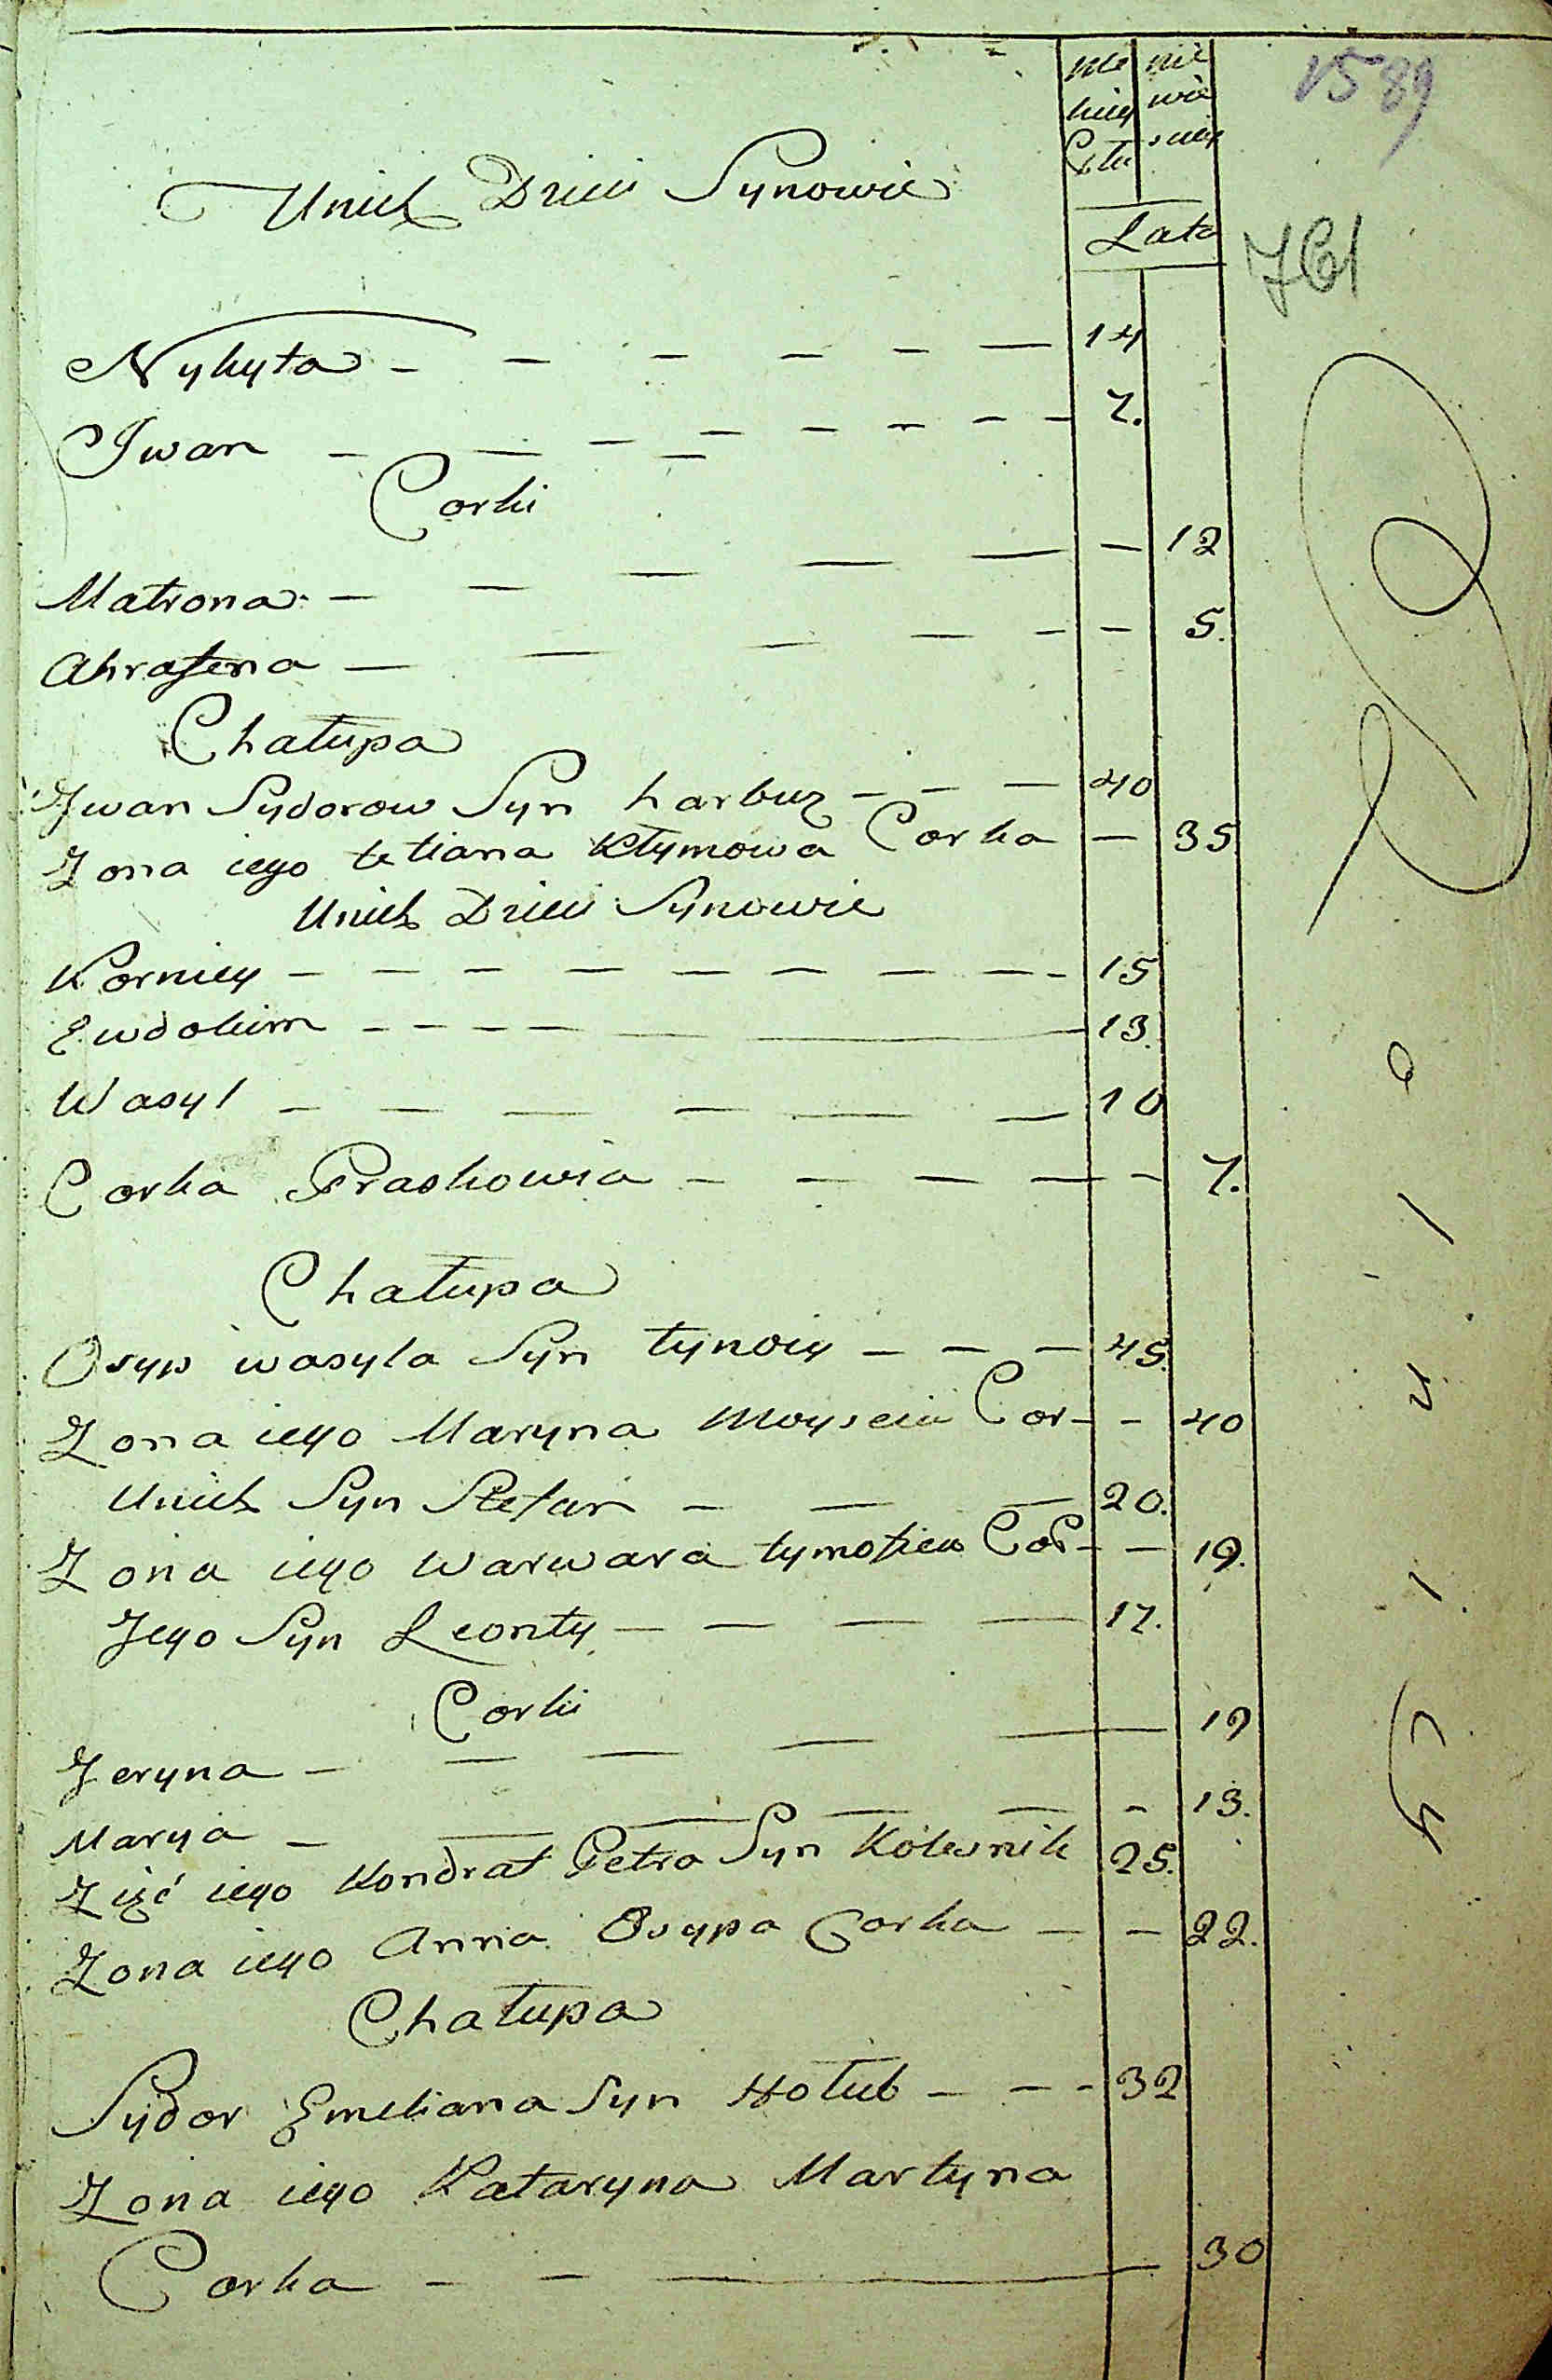 Mę nie
kiey wie
Płu sciey
1589
Unich Dzieci Synowie
Lata
761
Nykyta - - - - - — 14
Iwan - - - - - - - - 7.
Corki
Matrona - - - - - — — 12
Ahrafena — - - - - — 5.
Chałupa
Iwan Sydorow Syn harbuz - - — 40
Zona iego tetiana Kłymowa Corka — 35
Unich Dzieci Synowie
Korniey - - - - - - - - - 15
Ewdokim - - - - — — 13.
Wasyl - - - - - — 10
Corka Praskowia - - - — - 7.
Chałupa
Osyp wasyla Syn tynowy - - — 45.
Zona iego Maryna Moyseia Cor - - 40
Unich Syn Stefan - — — 20.
Zona iego Warwara tymofieia Cor - — 19.
Jego Syn Leonty - - - — 17.
Corki
Jeryna - - - — — 19
Marya - — — — — - 13.
Zięć iego Kondrat Petra Syn Kolesnik 25.
Zona iego Anna Osypa Corka — — 22.
Chałupa
Sydor Emeliana Syn Hołub - - - 32
Zona iego Kataryna Martyna
Corka - - — — 30